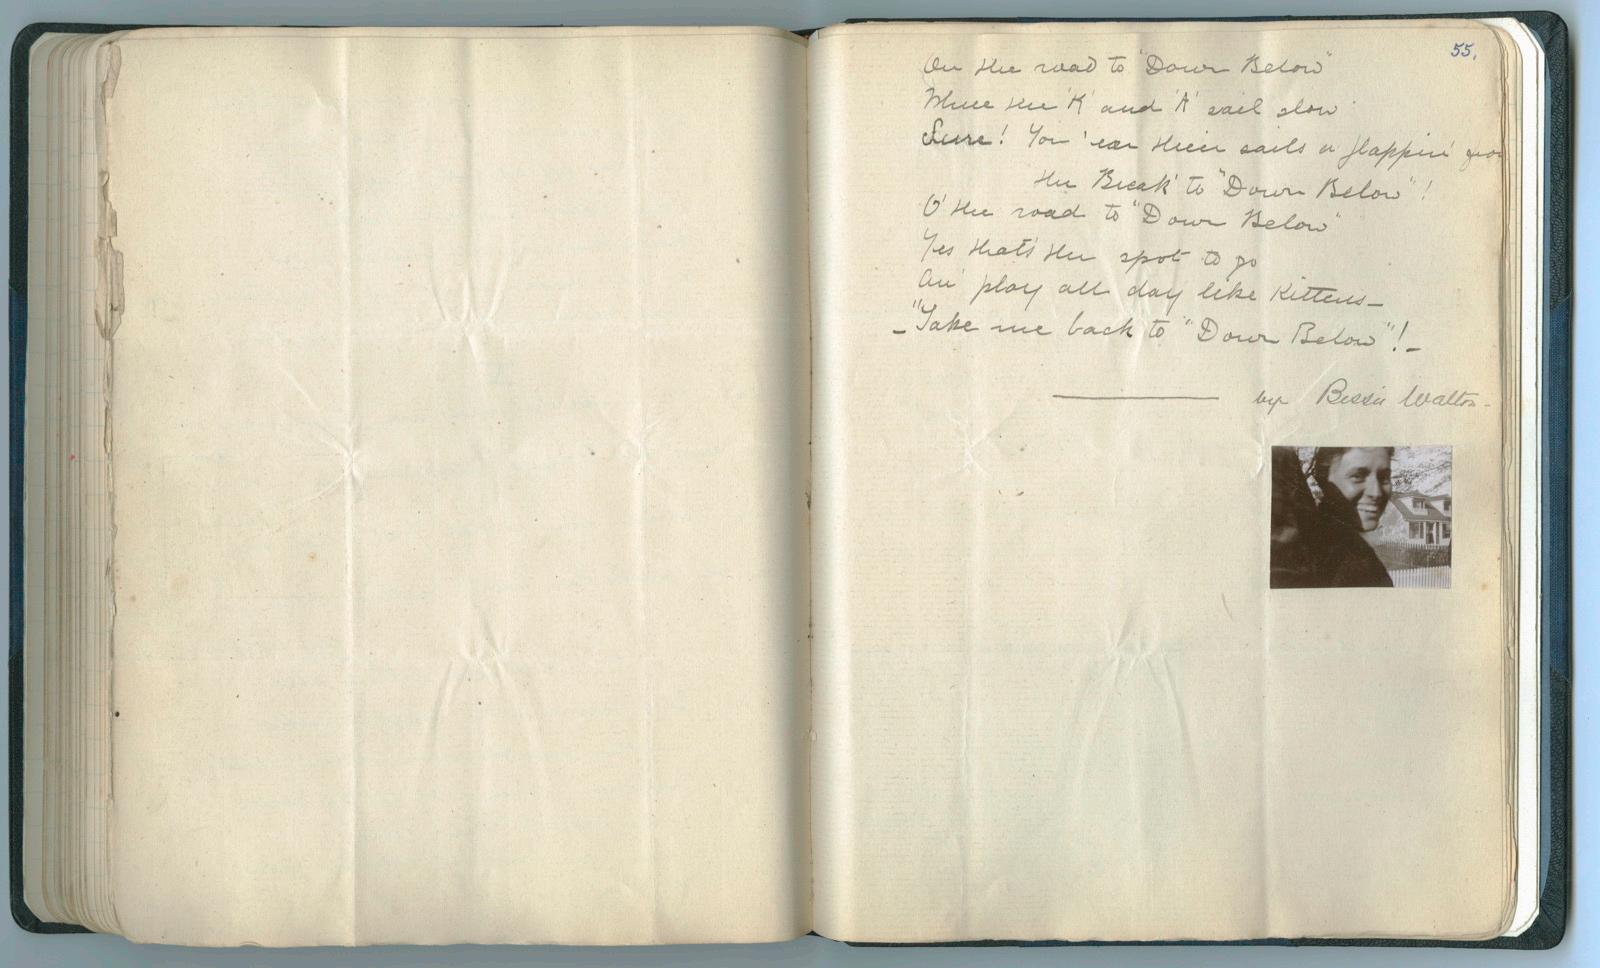 55.
On the road to "Down Below"
Where the 'K' and 'A' sail slow
Sure! You 'ear their sails a flappin' from
the 'Break' to "Down Below"!
O' the road to "Down Below"
Yes that's the spot to go
An' play all day like Kittens_
_"Take me back to "Down Below"!_
by Bessie Walton_